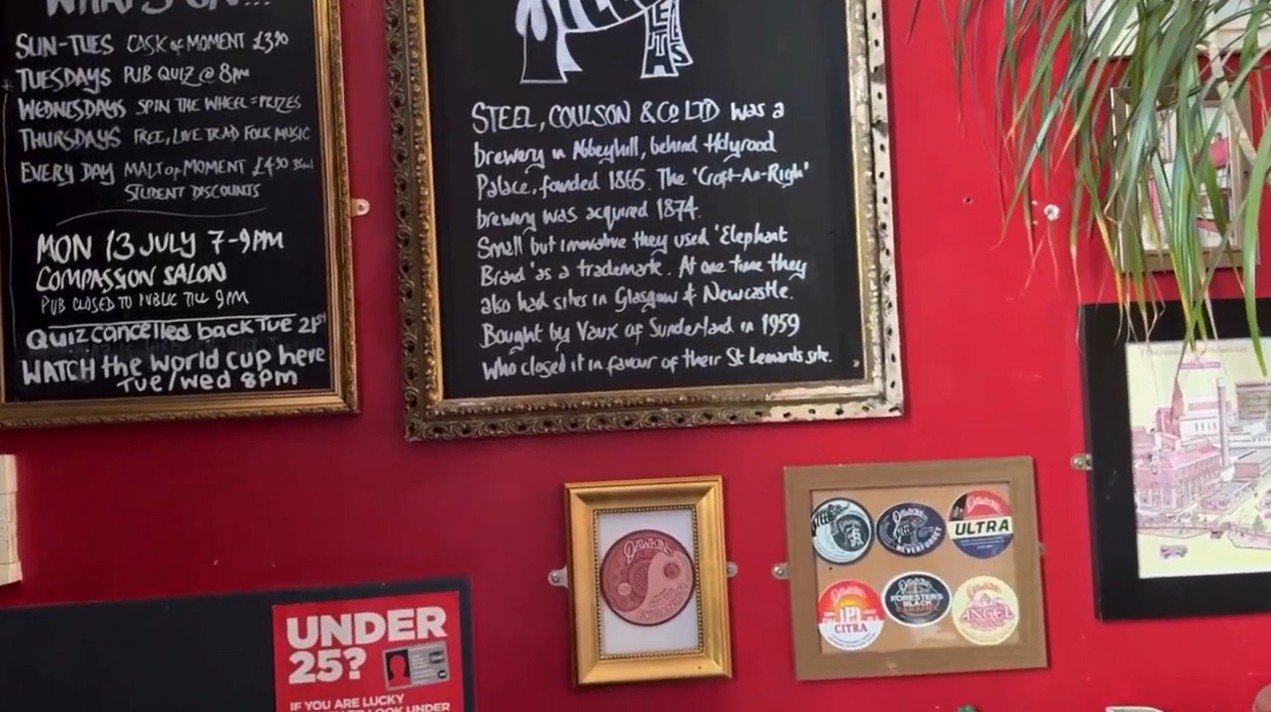 WHAT'S ON...
SUN-TUES CASK of MOMENT £3.90
TUESDAYS PUB QUIZ @ 8PM
WEDNESDAYS SPIN THE WHEEL = PRIZES
THURSDAYS FREE, LIVE TRAD FOLK MUSIC
EVERY DAY MALT of MOMENT £4.90 35ml
STUDENT DISCOUNTS
MON 13 JULY 7-9PM
COMPASSION SALON
PUB CLOSED TO PUBLIC TILL 9PM
Quiz cancelled back Tue 21st
WATCH the World Cup here
Tue/Wed 8pm
STEEL, COULSON & CO LTD was a
brewery in Abbeyhill, behind Holyrood
Palace, founded 1865. The 'Croft-An-Righ'
brewery was acquired 1874.
Small but innovative they used 'Elephant
Brand' as a trademark. At one time they
also had sites in Glasgow & Newcastle.
Bought by Vaux of Sunderland in 1959
who closed it in favour of their St Lenards site.
DAWKINS
NEVER FORGET
ULTRA
CITRA
FORESTER'S
BLACK
ANGEL
UNDER
25?
IF YOU ARE LUCKY
LOOK UNDER